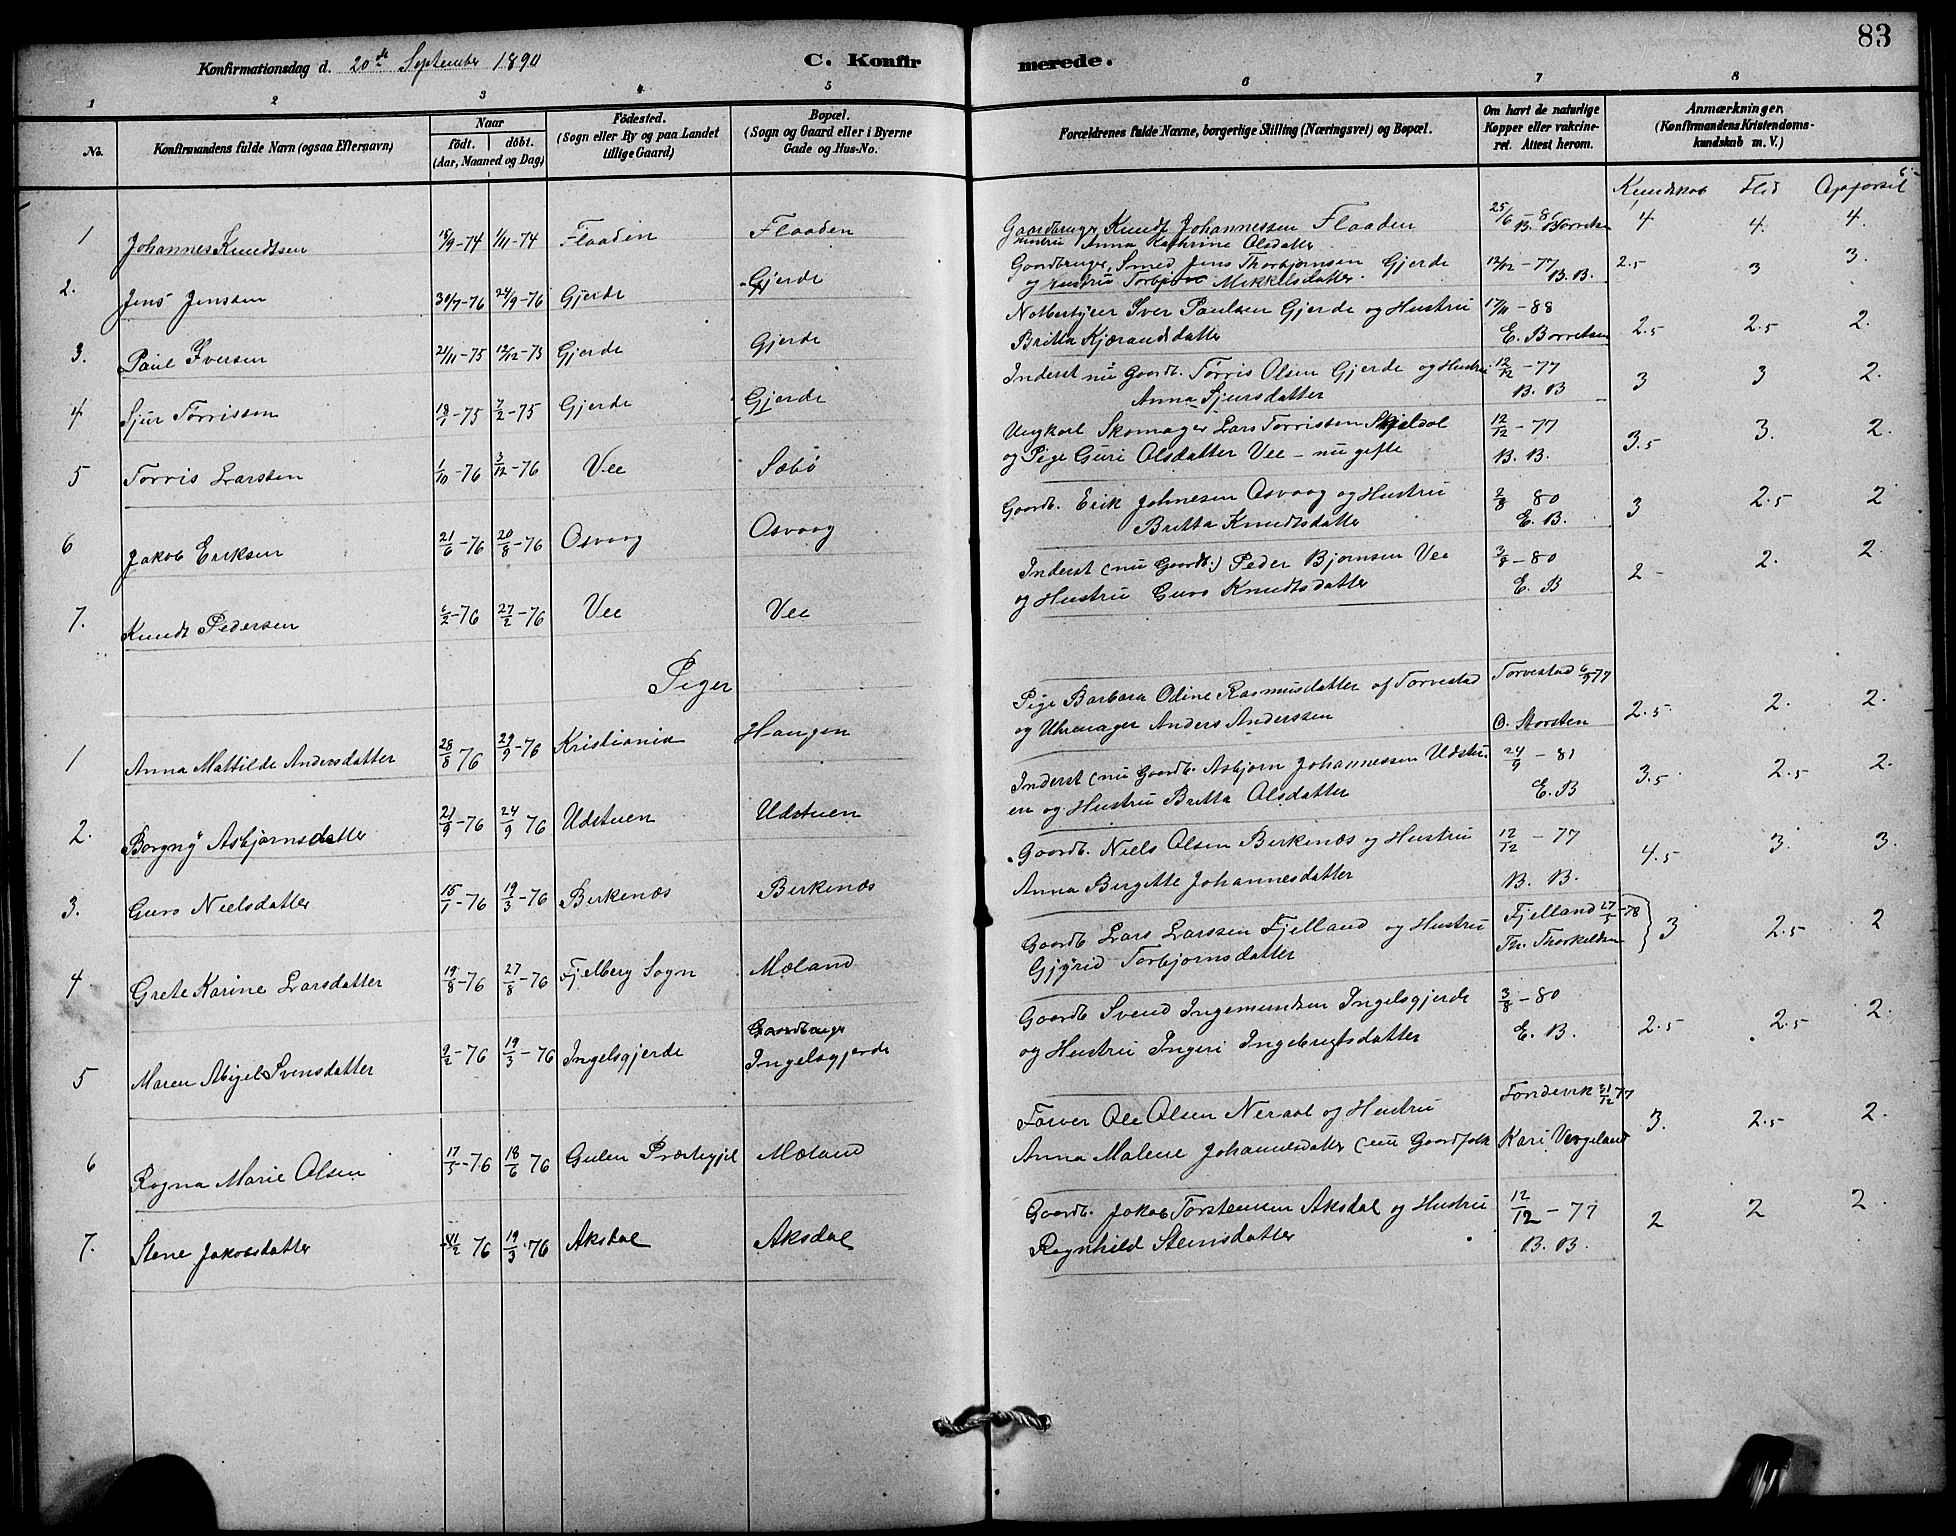 83
Konfirmationsdag d. 20de September 1890 C. Konfirmerede.
1 2 3 4 5 6 7 8
No. Konfirmandens fulde Navn (ogsaa Efternavn) Naar født. døbt. (Aar, Maaned og Dag) Fødested. (Sogn eller By og paa Landet tillige Gaard) Bopæl. (Sogn og Gaard eller i Byerne Gade og Hus-No. Forældrenes fulde Navne, borgerlige Stilling (Næringsvei) og Bopæl. Om havt de naturlige Kopper eller vakcineret. Attest herom. Anmærkninger. (Konfirmandens Kristendomskundskab m. V.)
Kundskab Flid Opførsel
1 Johannes Knudtsen 15/9-74 1/11-74 Flaaden Flaaden Gaardbruger Knudt Johannessen Flaaden 25/6 4 4. 4.
Hustru Anna Kathrine Olsdatter
2. Jens Jenssen 30/7-76 24/9-76 Gjerde Gjerde Gaardbruger, Smed Jens Thorbjørnsen Gjerde 12/12-77 2.5 3 3.
og Hustru Mikkelsdatter. B. B.
3. Paul Iversen 21/11-75 12/12-75 Gjerde Gjerde Iver Paulsen Gjerde og Hustru 17/11-88 2.5 2.5 2.
Britta Kjærandsdatter E. Borretsen
4 Sjur Torrissen 18/1-75 7/2-75 Gjerde Gjerde Inderst nu Gaardb. Torris Olsen Gjerde og Hustru 12/12-77 3 3 2.
Anna Sjursdatter B. B
5 Torris Larssen 1/10-76 3/12-76 Vee Søbø Ungkarl Skomager Lars Torrissen 12/12-77 3.5 3. 2.
og Pige Guri Olsdatter Vee - nu gifte B. B.
6 Jakob Eriksen 21/6-76 20/8-76 Osvaag Osvaag Gaardb. Erik Johnesen Osvaag og Hustru 3/8 80 3 2.5 2
Britta Knudtsdatter E. B.
7. Knudt Pedersen 6/2-76 27/2-76 Vee Vee Inderst (nu Gaardb.) Peder Bjørnsen Vee 3/8-80 2 2. 2.
og Hustru Guro Knudtsdatter E. B
Piger
1 Anna Mattilde Andersdatter 28/8 76 29/9-76 Kristiania Haugen Pige Barbara Odine Rasmusdatter af Torvestad Torvestad 6/9 77 2.5 2. 2.
og Uhrmager Anders Anderssen O. Storsten
2. Borgny Asbjørnsdatter 21/9-76 24/9 76 Udstuen Udstuen Inderst (nu Gaardb. Asbjørn Johannessen Udstu- 24/9-81 3.5 2.5 2.
en og Hustru Britta Olsdatter E. B
3. Guro Nielsdatter 15/1-76 19/3-76 Birkenæs Birkenæs Gaardb. Niels Olsen Birkenæs og Hustru 12/12-77 4.5 3. 3.
Anna Birgitte Johannesdatter B. B.
4 Grete Karine Larsdatter 19/8-76 27/8-76 Fjelberg Sogn Mæland Gaardb Lars Larssen Fjelland og Hustru Fjelland 27/5-78 3 2.5 2
Gjyrid Torbjørnsdatter Th. Thorkildsen
5 Maren Abigel Svensdatter 9/2-76 19/3-76 Ingelsgjerde Gaardbruger Ingelsgjerde Gaardb Svend Ingemundsen Ingelsgjerde 3/8-80 2.5 2.5 2.
og Hustru Ingeri Ingebrigtsdatter E. B.
6 Ragna Marie Olsen 17/5-76 18/6 76 Gulen Præstegjel Mæland Farver Ole Olsen Neraal og Hustru 31/12 77 3. 2.5 2.
Anna Malene Johannesdatter (nu Gaardfolk Kari Vergeland
7. Stene Jakobsdatter 76 19/3-76 Aksdal Aksdal Gaardb. Jakob Torstensen Aksdal og Hustru 12/12-77 2 2 2.
Ragnhild Steinsdatter B. B.